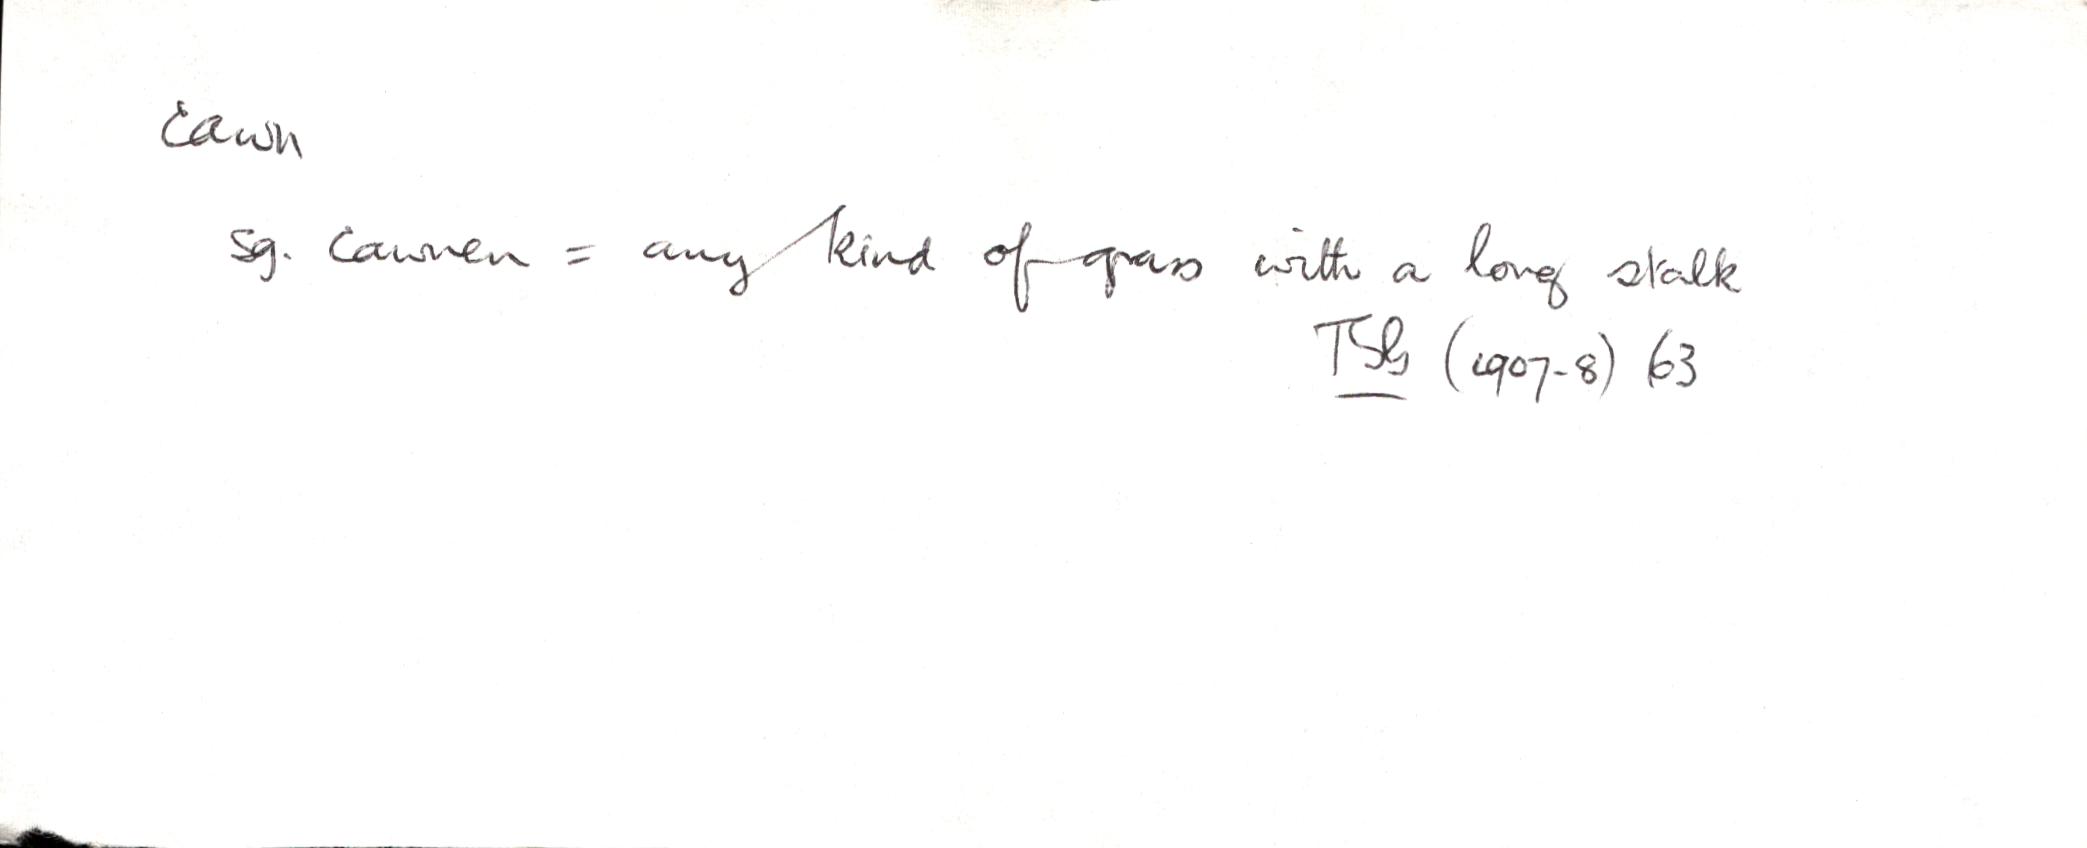 cawn
sg. cawnen = any kind of grass with a long stalk
(1907-8) 63